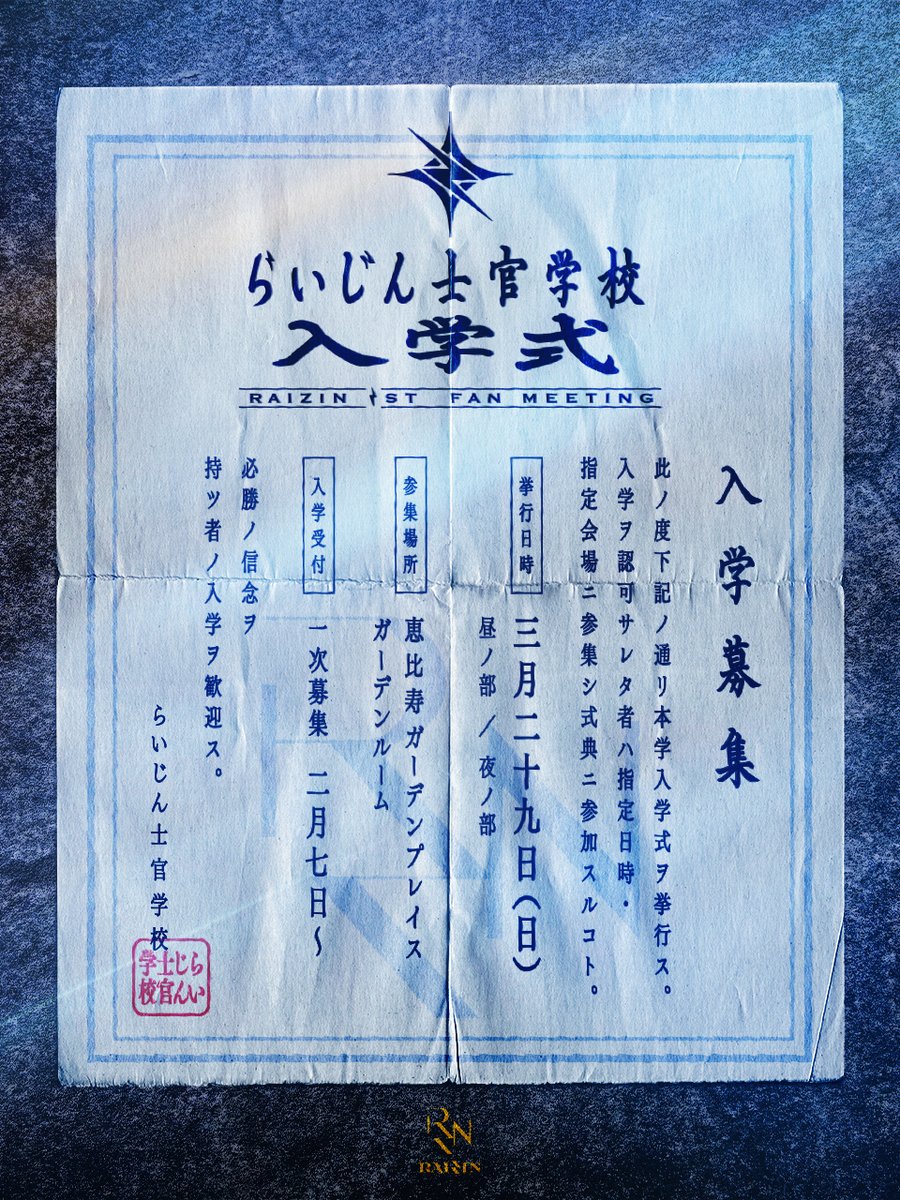 らいじん士官学校
入学式
RAIZIN 1ST FAN MEETING
入学募集
此ノ度下記ノ通リ本学入学式ヲ挙行ス。
入学ヲ認可サレタ者ハ指定日時・
指定会場ニ参集シ式典ニ参加スルコト。
挙行日時
三月二十九日(日)
昼ノ部／夜ノ部
参集場所
恵比寿ガーデンプレイス
ガーデンルーム
入学受付
一次募集 二月七日～
必勝ノ信念ヲ
持ツ者ノ入学ヲ歓迎ス。
らいじん士官学校
らい
じん
士官
学校
RZN
RAIZIN